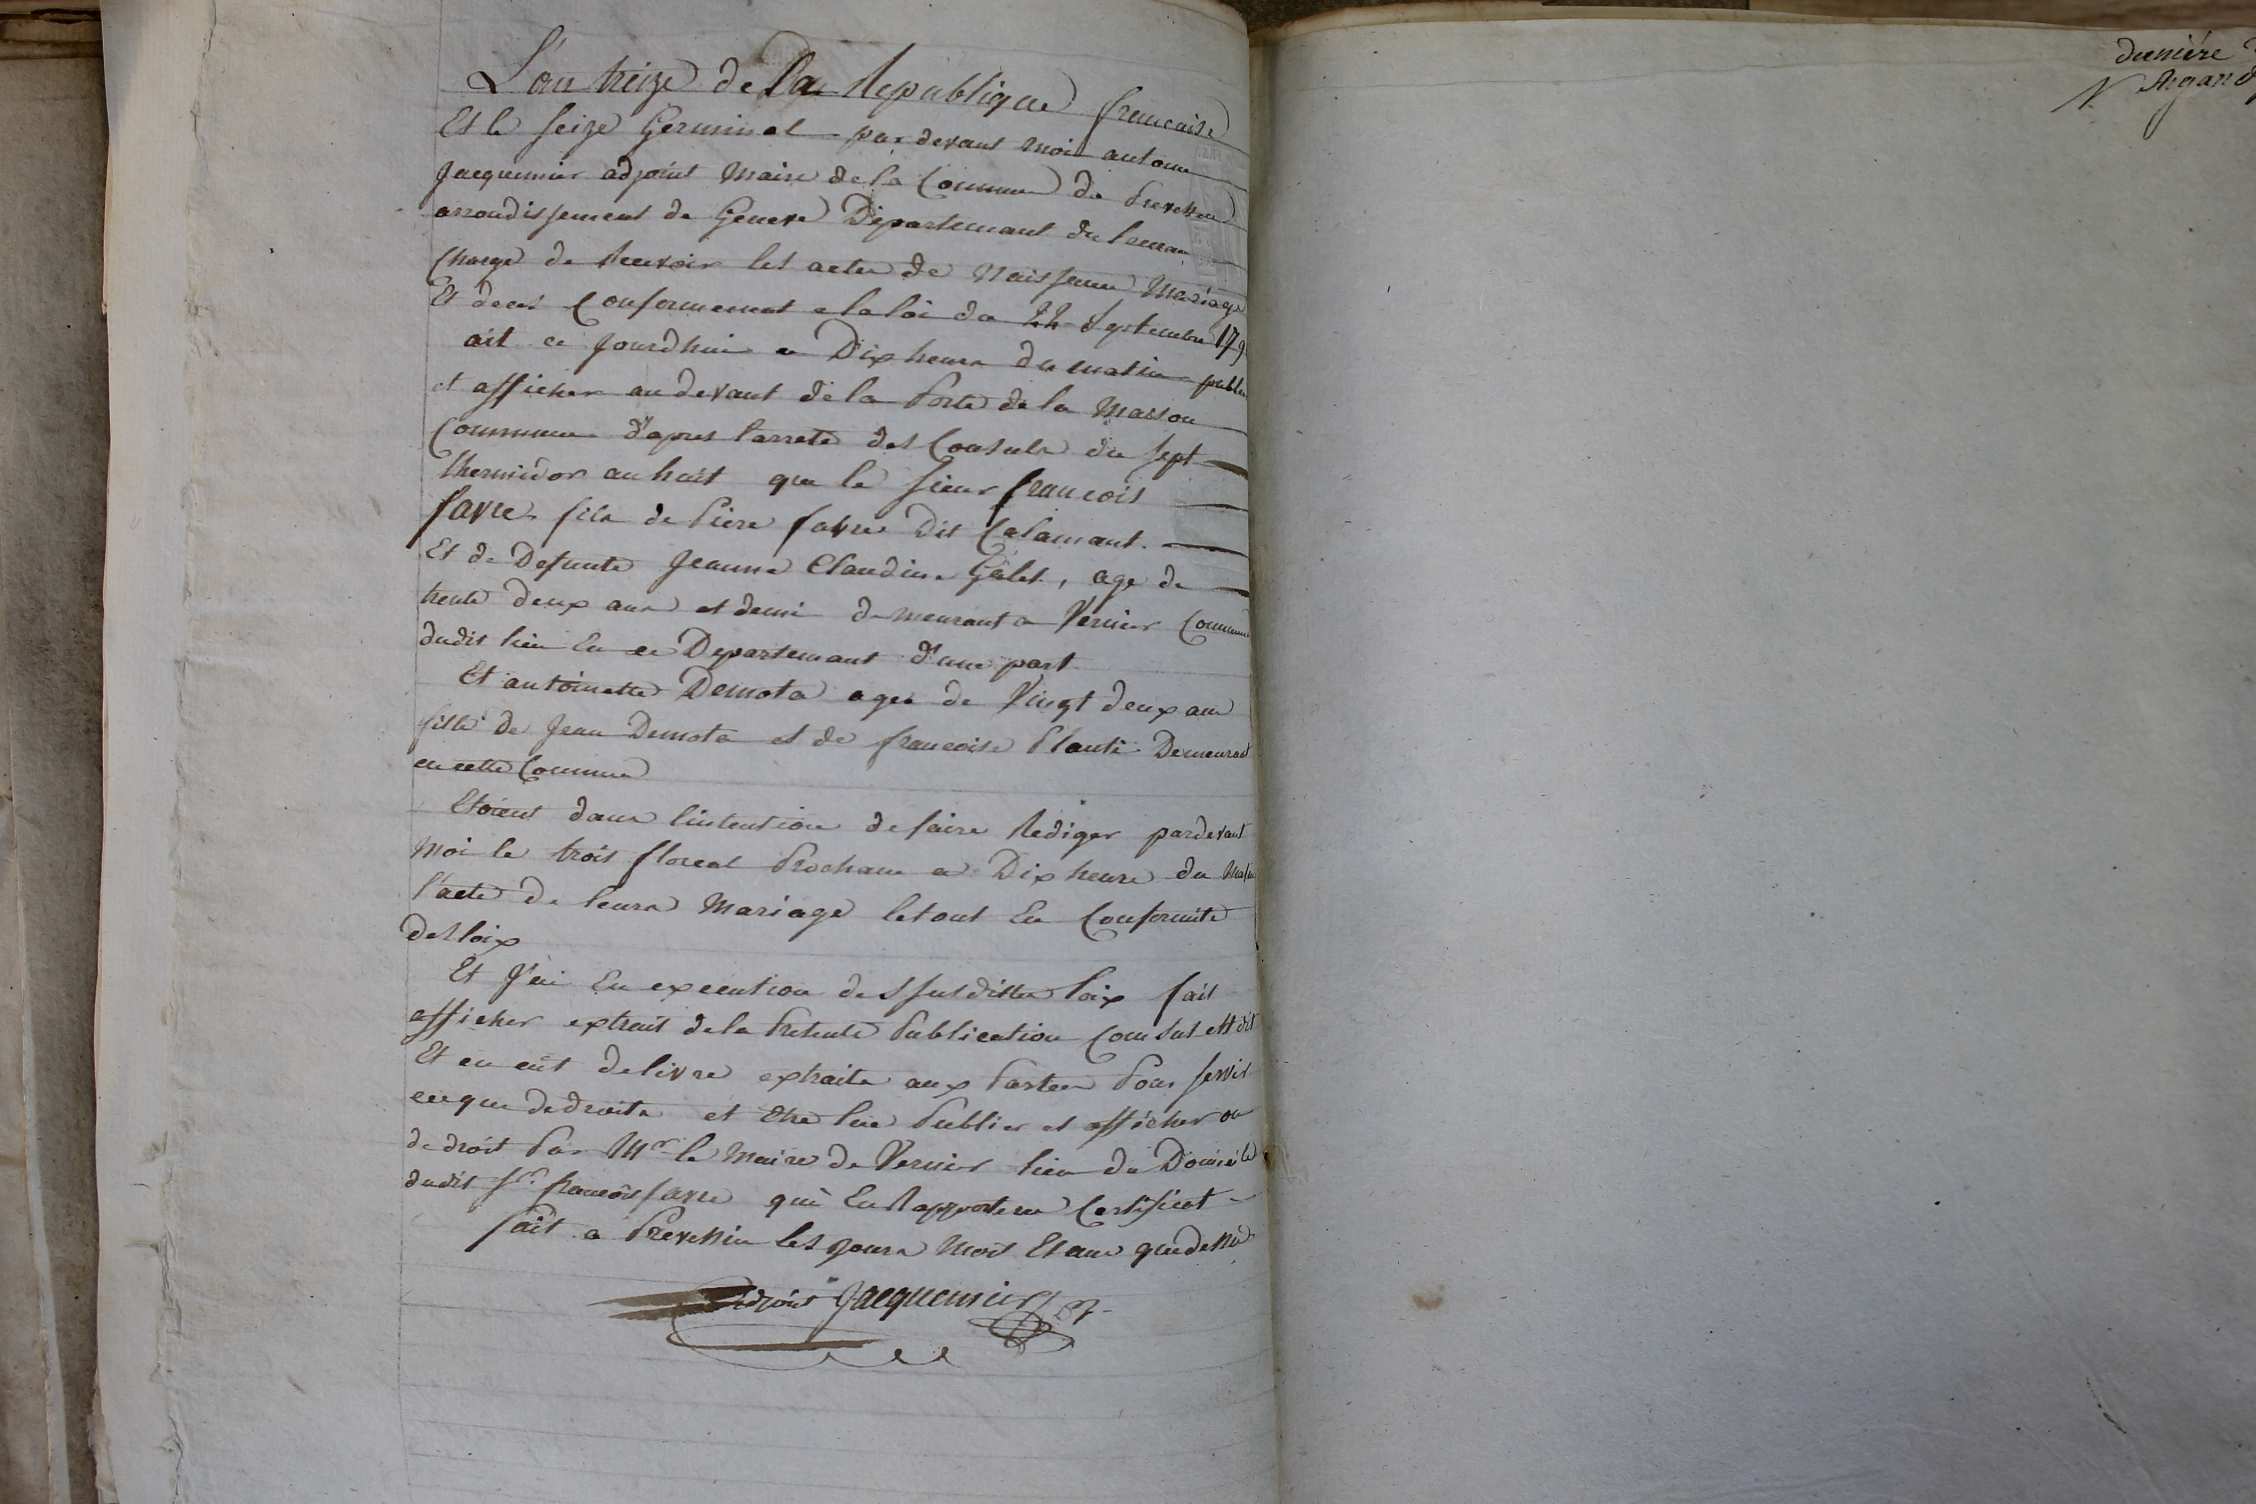 L'an treize de la Republique francaise
Et le seize Germinal par devant moi antoine
Jacquemier adjoint Maire de la Commune de Prevessin
arrondissement de Geneve Departemant du leman
Charge de Recevoir les actes de Naissance Mariage
Et deces Conformement a la loi du 22 Septembre 179
ait ce jourdhui a Dix heura du matin publie
et afficher au devant de la Porte de la Maison
Commune d'apres l'arrete des Consuls du sept
thermidor an huit que le sieur francois
favre fils de Piere favre dit Calamant
Et de Defunte Jeanne Claudine Gâlet, age de
trente deux ans et demi demeurant a Vernier Commune
dudit lieu En ce Departemant d'une part
Et antoinette Demota agee de Vingt deux ans
fille de Jean Demota et de francoise Demeurant
en cette Commune
Etoient dans l'intention de faire Rediger pardevant
Moi le trois floreal Prochain a Dix heure du Matin
l'acte de leurs Mariage le tout En Conformite
des loix
Et J'ai En execution des susdittes loix fait
afficher extrait de la Presente Publication Com sus est dit
Et en ait delivre extraits aux Parties Pour servir
ce que de droite et Etre lue Publier et afficher ou
de droit Par Mr le Maire de Vernier lieu du Domicile
dudit Sr. francois favre qui En Raportera Certificat
fait a Prevessin les jours Mois Et ans que dessus
adjoint Jacquemier
derniere
Argand